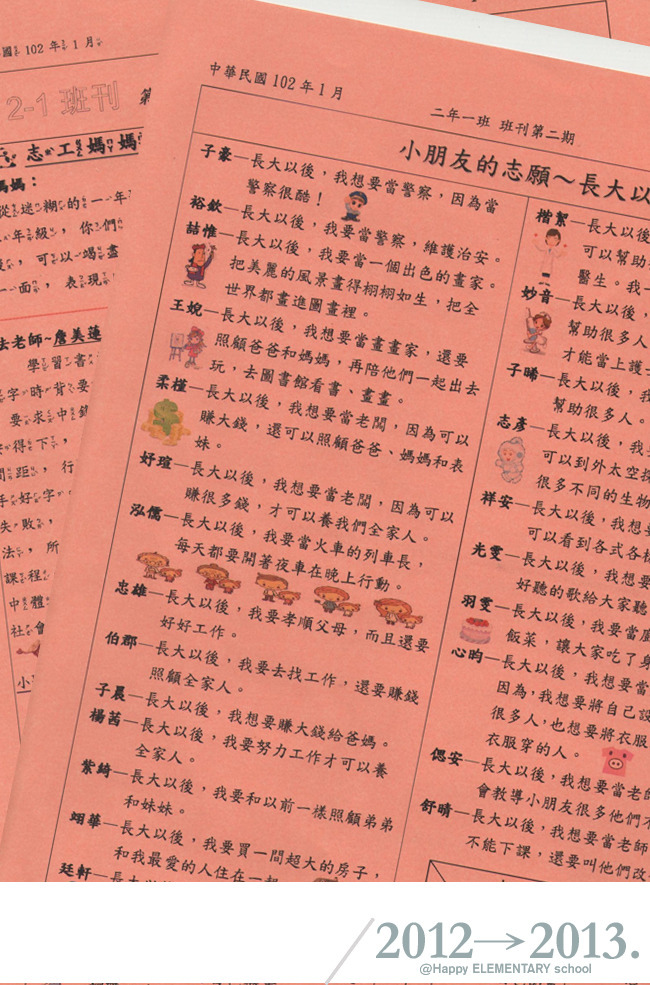 國 102 年 1 月
2-1 班刊 第
志工媽媽
媽媽：
從迷糊的一年
年級，你們
，可以竭盡
一面，表現
法老師~詹美蓮
學習書
字時背要
要求中鋒
得下，
間距，行
手好字
失敗，
法，所
課程
中體
社會
小
中華民國 102 年 1 月
二年一班 班刊第二期
小朋友的志願～長大以
子豪—長大以後，我想要當警察，因為當
警察很酷！
裕欽—長大以後，我要當警察，維護治安。
詰惟—長大以後，我要當一個出色的畫家。
把美麗的風景畫得栩栩如生，把全
世界都畫進圖畫裡。
王婗—長大以後，我想要當畫畫家，還要
照顧爸爸和媽媽，再陪他們一起出去
玩，去圖書館看書、畫畫。
柔槿—長大以後，我想要當老闆，因為可以
賺大錢，還可以照顧爸爸、媽媽和表
妹。
妤瑄—長大以後，我想要當老闆，因為可以
賺很多錢，才可以養我們全家人。
泓儒—長大以後，我要當火車的列車長，
每天都要開著夜車在晚上行動。
忠雄—長大以後，我要孝順父母，而且還要
好好工作。
伯郡—長大以後，我要去找工作，還要賺錢
照顧全家人。
子晨—長大以後，我想要賺大錢給爸媽。
楊茜—長大以後，我要努力工作才可以養
全家人。
紫綺—長大以後，我要和以前一樣照顧弟弟
和妹妹。
翊華—長大以後，我要買一間超大的房子，
和我最愛的人住在一起
廷軒—長大以後
楷絜—長大以後
可以幫助
醫生。我一
妙音—長大以後，
幫助很多人
才能當上護
子晞—長大以後，我
幫助很多人。
志彥—長大以後，我
可以到外太空探
很多不同的生物
祥安—長大以後，我想要
可以看到各式各樣
光雯—長大以後，我想要
好聽的歌給大家聽
羽雯—長大以後，我要當廚
飯菜，讓大家吃了身
心昀—長大以後，我想要當
因為，我想要將自己設
很多人，也想要將衣服
衣服穿的人。
偲安—長大以後，我想要當老師
會教導小朋友很多他們不
舒晴—長大以後，我想要當老師
不能下課，還要叫他們改
2012→2013.
@Happy ELEMENTARY school